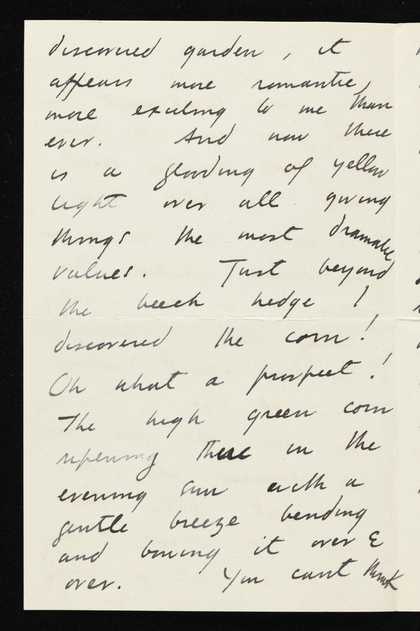 discovered garden, it
appears more romantic,
more exciting to me than
ever. And now there
is a flooding of yellow
light over all giving
things the most dramatic
values. Just beyond
the beech hedge I
discovered the corn!
Oh what a prospect!
The high green corn
ripening there in the
evening sun with a
gentle breeze bending
and bowing it over &
over. You can't think